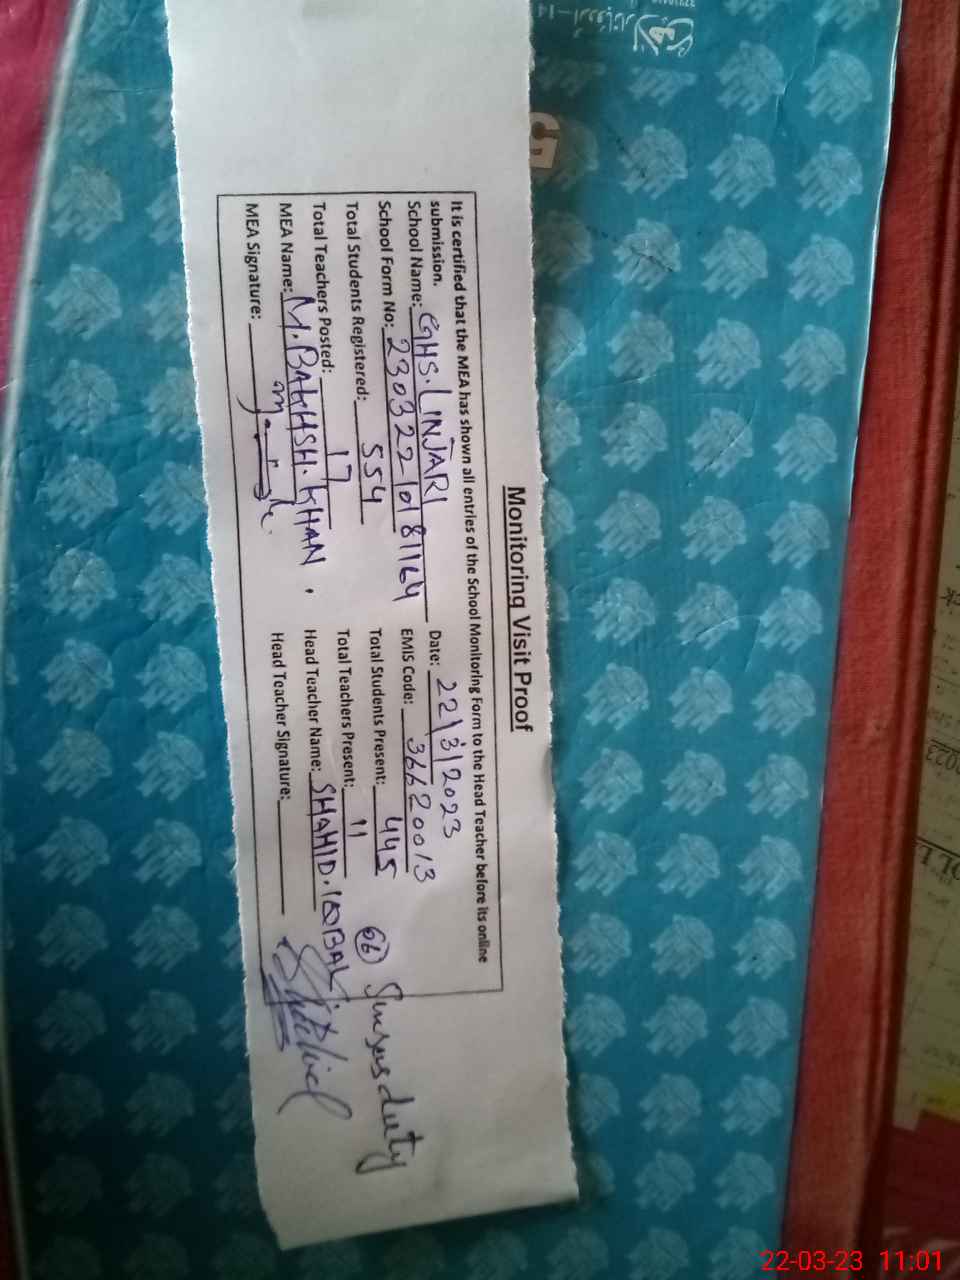 Monitoring Visit Proof
It is certified that the MEA has shown all entries of the School Monitoring Form to the Head Teacher before its online
submission.
School Name: GHS. LINJARI Date: 22/3/2023
School Form No: 2303220181164 EMIS Code: 36620013
Total Students Registered: 554 Total Students Present: 445
Total Teachers Posted: 17 Total Teachers Present: 11 06 Sunses duty
MEA Name: M. BAKHSH. KHAN. Head Teacher Name: SHAHID. IQBAL
MEA Signature: Head Teacher Signature:
5
2023
22-03-23 11:01